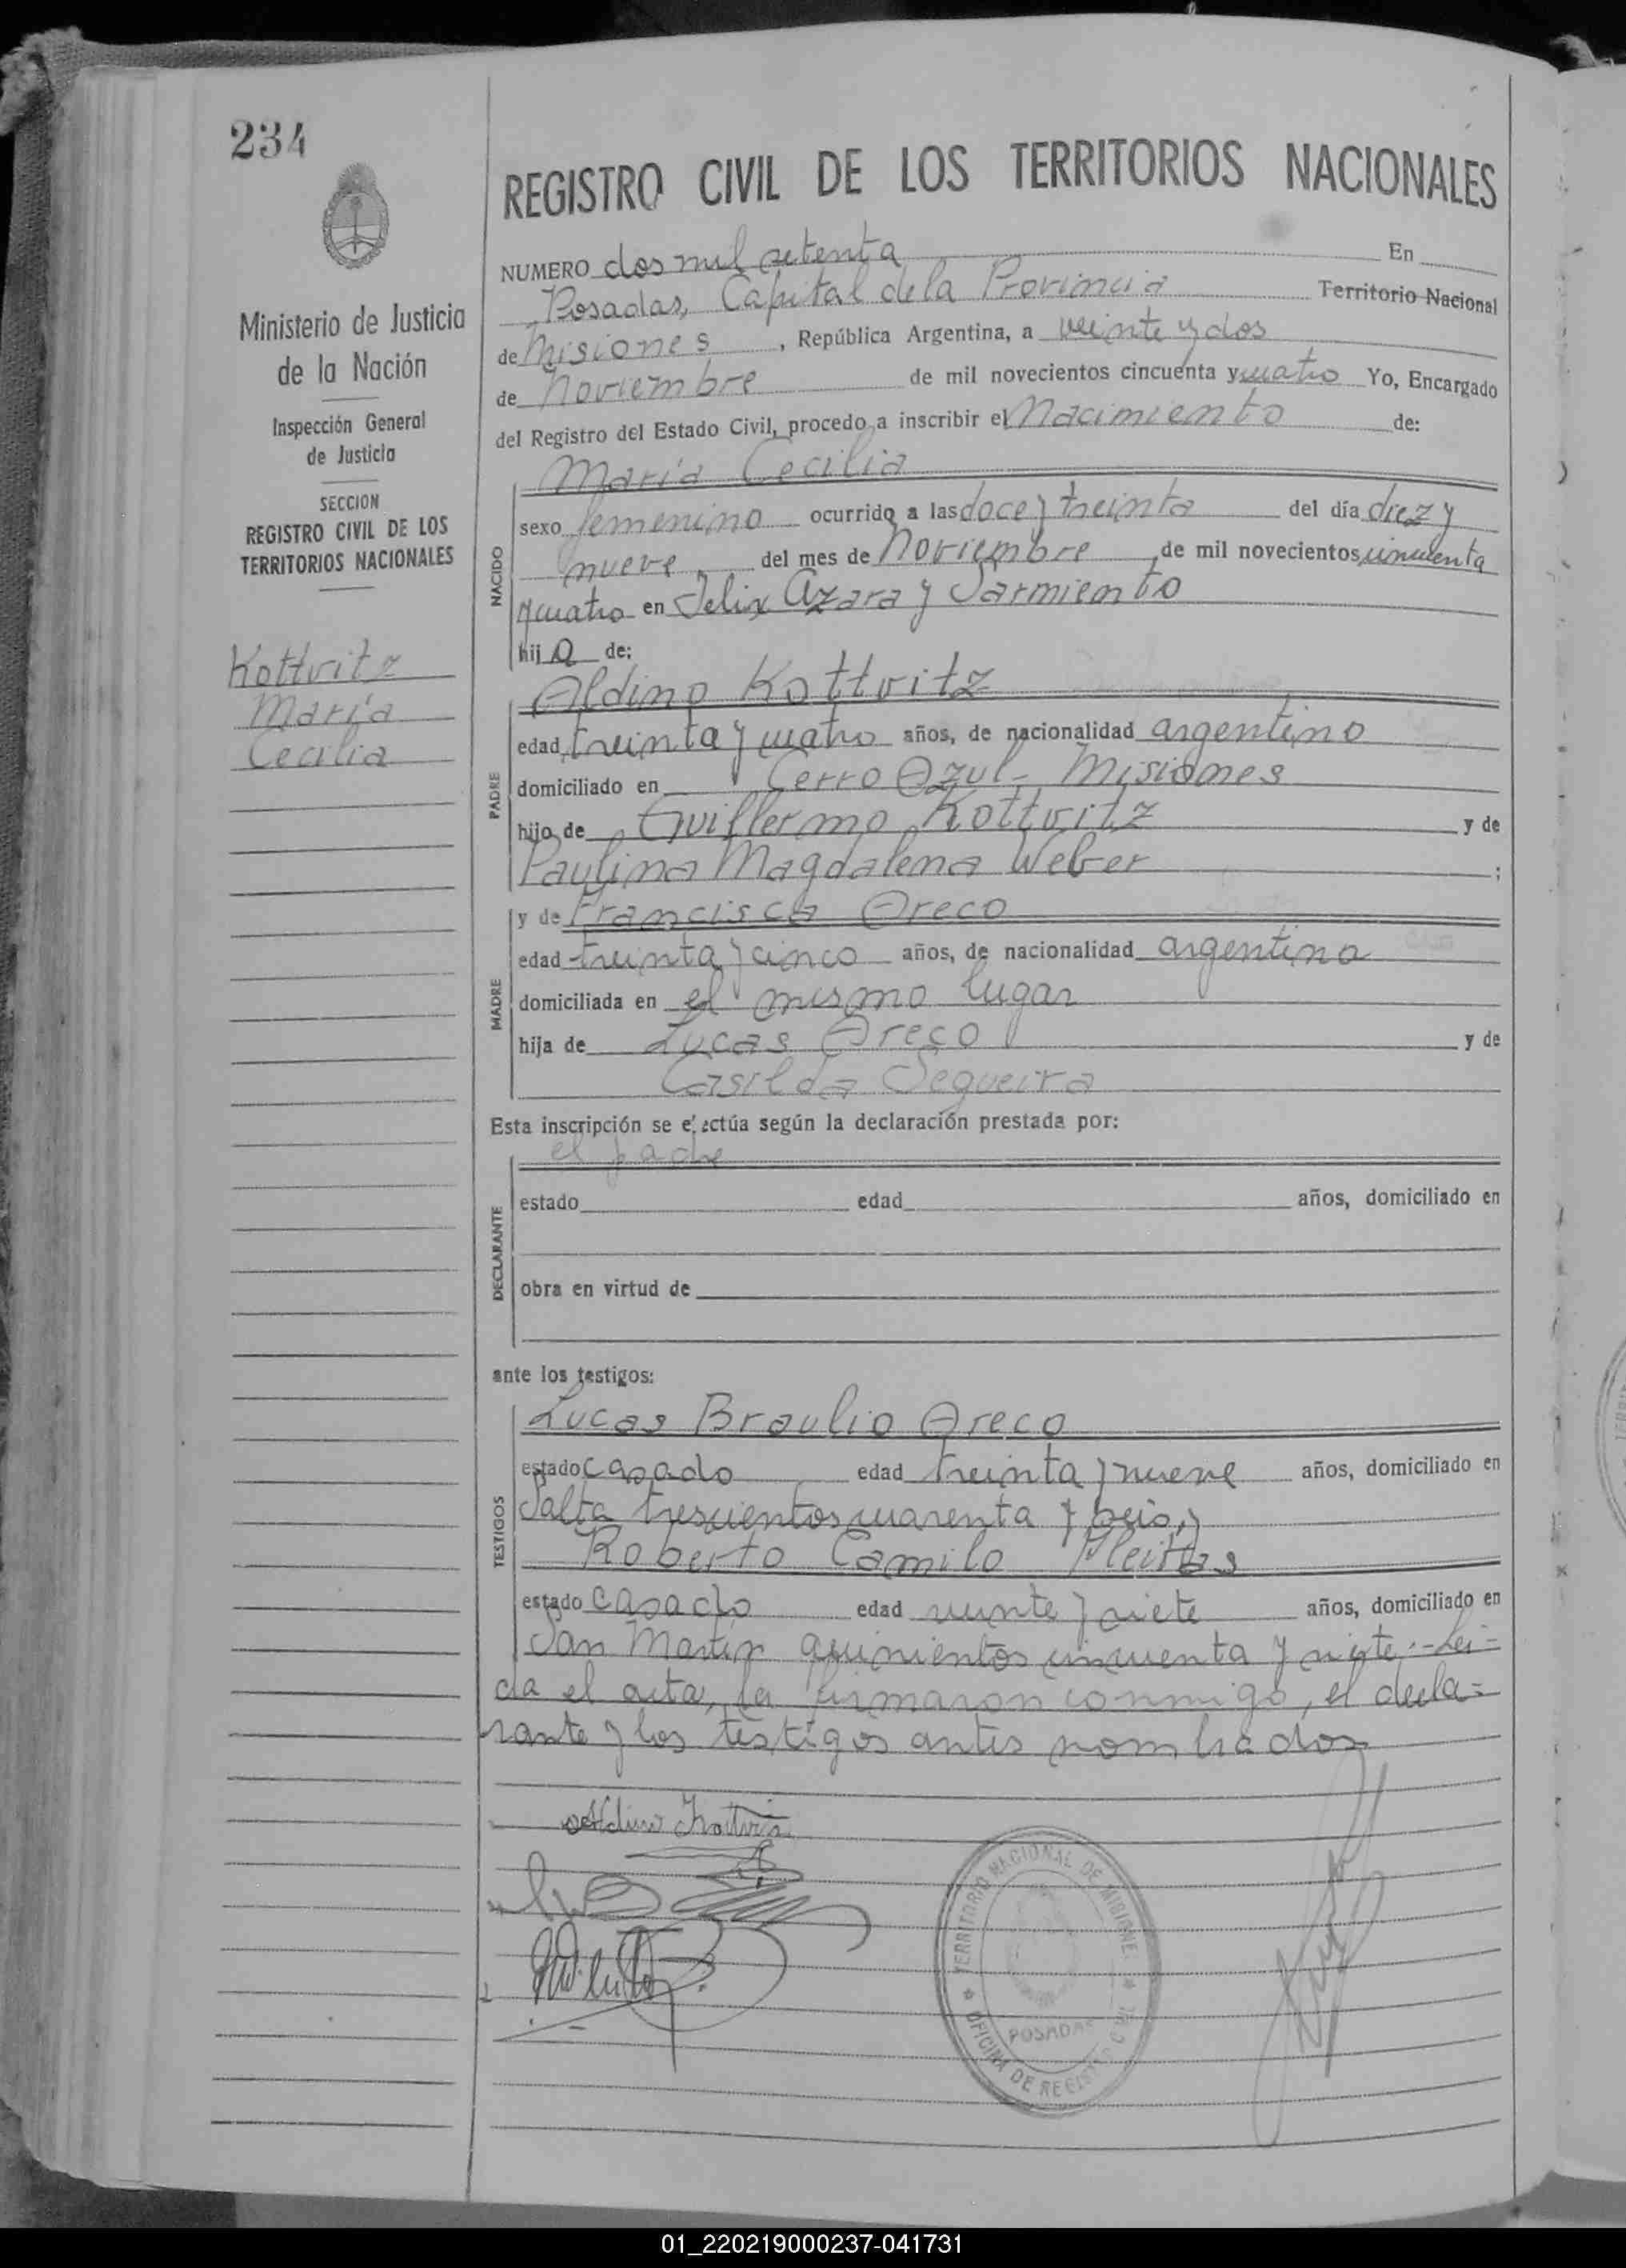 234
Ministerio de Justicia
de la Nación
Inspección General
de Justicia
SECCION
REGISTRO CIVIL DE LOS
TERRITORIOS NACIONALES
Kottvitz
María
Cecilia
REGISTRO CIVIL DE LOS TERRITORIOS NACIONALES
NUMERO dos mil setenta En
Posadas, Capital de la Provincia Territorio Nacional
de Misiones, República Argentina, a veinte y dos
de Noviembre de mil novecientos cincuenta y cuatro Yo, Encargado
del Registro del Estado Civil, procedo a inscribir el Nacimiento de:
María Cecilia
NACIDO
sexo femenino ocurrido a las doce y treinta del día diez y
nueve del mes de Noviembre, de mil novecientos cincuenta
y cuatro en Felix Azara y Sarmiento
hija de:
Aldino Kottvitz
PADRE
edad treinta y cuatro años, de nacionalidad argentino
domiciliado en Cerro Azul - Misiones
hijo de Guillermo Kottvitz y de
Paulina Magdalena Weber ;
y de Francisca Areco
MADRE
edad treinta y cinco años, de nacionalidad argentina
domiciliada en el mismo lugar
hija de Lucas Areco y de
Casilda Segueira
Esta inscripción se efectúa según la declaración prestada por:
el padre
DECLARANTE
estado edad años, domiciliado en
obra en virtud de
ante los testigos:
Lucas Braulio Areco
TESTIGOS
estado casado edad treinta y nueve años, domiciliado en
Salta trescientos cuarenta y seis, y
Roberto Camilo Fleitas
estado casado edad veinte y siete años, domiciliado en
San Martín quinientos cincuenta y siete.- Lei-
da el acta, la firmaron conmigo, el decla-
rante y los testigos antes nombrados
Aldino Kottvitz
TERRITORIO NACIONAL DE MISIONES
POSADAS
OFICINA DE REGISTRO CIVIL
01_220219000237-041731